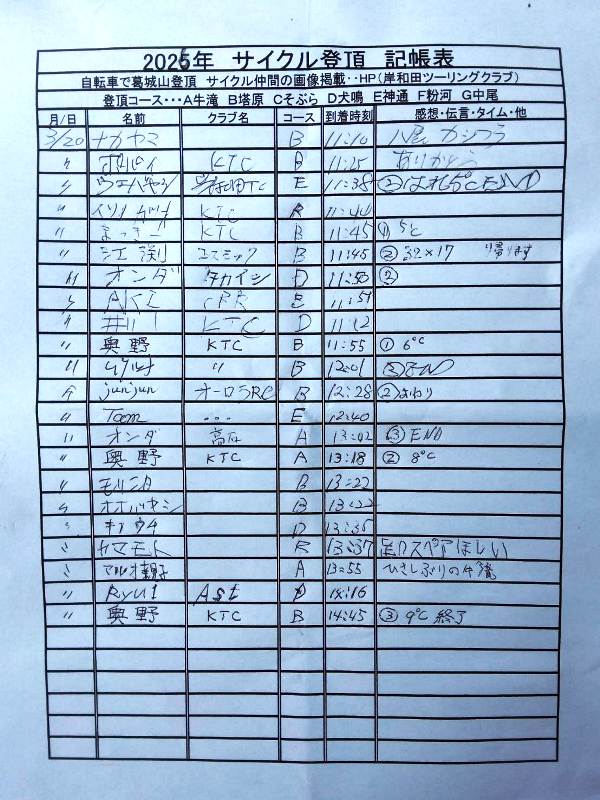 2025年 サイクル登頂 記帳表
自転車で葛城山登頂 サイクル仲間の画像掲載‥HP（岸和田ツーリングクラブ）
登頂コース・・・A牛滝 B塔原 Cそぶら D犬鳴 E神通 F粉河 G中尾
月/日 名前 クラブ名 コース 到着時刻 感想・伝言・タイム・他
3/20 ナカヤマ B 11:10
〃 ポパイ KTC 11:25 ありがとう
〃 岸和田TC E 11:38
〃 KTC 11:40
〃 まっきー KTC B 11:45 ① 5℃
〃 江渕 B 11:45 ② 32×17 帰ります
オンダ タカイシ D 11:50 ②
AKI CRR 11:51
井川 KTC D
〃 奥野 KTC B 11:55 ① 6℃
〃 B 12:01 ③ END
junjun オーロラRC B 12:28 ② おわり
〃 Toom ... E 12:40
〃 オンダ 高石 A 13:02 ③ END
〃 奥野 KTC A 13:18 ② 8℃
〃 B 13:22
〃 オオバヤシ B 13:22
D 13:35
ヤマモト 13:37 足のスペアほしい
マルオ親子 A 13:55 ひさしぶりの牛滝
〃 Ryu1 Ast 14:16
〃 奥野 KTC B 14:45 ③ 9℃ 終了